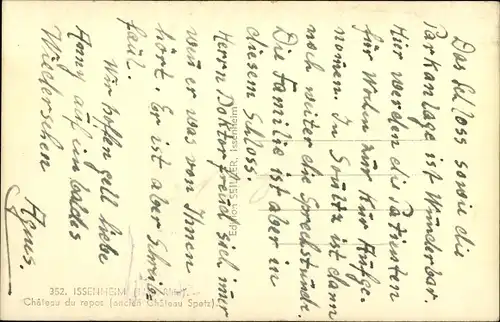 Das Schloss sowie die
Parkanlage ist Wunderbar.
Hier werden die Patienten
für Wochen zur Kur Aufge-
nomen. In Soultz ist dann
noch weiter die Sprechstunde.
Die Familie ist aber in
diesem Schloss.
Herrn Doktor freud sich imer
wen er was von Ihnen
hört. Er ist aber Schreib-
faul.
Wir hoffen gell liebe
Anny auf ein baldes
Wiedersehen
Agnes.
Edition SEILLER, Issenheim
352. ISSENHEIM
Château du repos (ancien Château Spetz).